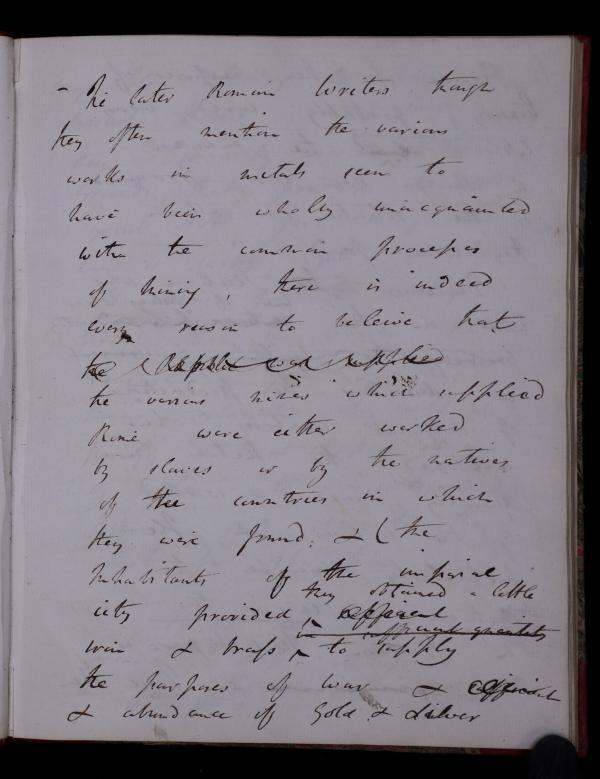 - The later Roman Writers though
they often mention the various
works in metals seem to
have been wholly unacquainted
with the common processes
of Mining, there is indeed
every reason to beleive that
the Republic was supplied
the various mines which supplied
Rome were either worked
by slaves or by the natives
of the countries in which
they were found; & (the
Inhabitants of the imperial
they obtained a little
city provided
sufficient quantity
iron & brass to supply
the purposes of war &
& abundance of Gold & silver